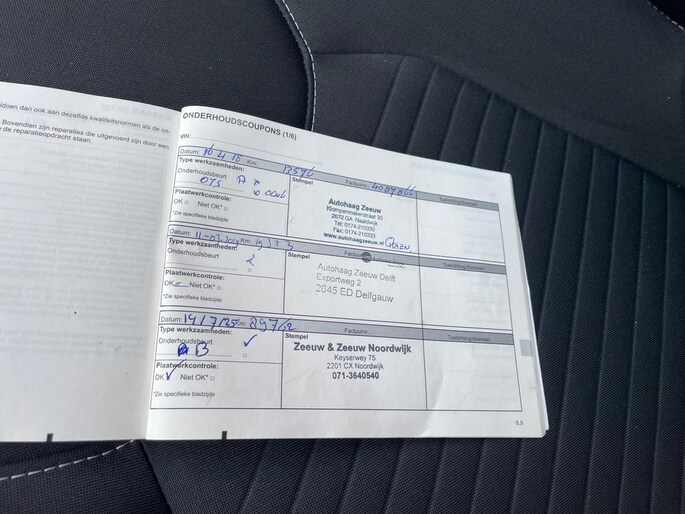 doen dan ook aan dezelfde kwaliteitsnormen als de on-
Bovendien zijn reparaties die uitgevoerd zijn door een
de reparatieopdracht staan.
ONDERHOUDSCOUPONS (1/6)
VIN:
Datum: 16 4 18 Km: Factuurnr.:
Type werkzaamheden: Stempel Toelichting/diversen
Onderhoudsbeurt
Autohaag Zeeuw
Klompenmakerstraat 30
2672 GA Naaldwijk
Tel: 0174-210330
Fax: 0174-210333
www.autohaagzeeuw.nl
Plaatwerkcontrole:
OK □ Niet OK* □
*Zie specifieke bladzijde
Datum: Km: Factuurnr.:
Type werkzaamheden: Stempel Toelichting/diversen
Onderhoudsbeurt
2
Autohaag Zeeuw Delft
Exportweg 2
2645 ED Delfgauw
Plaatwerkcontrole:
OK Niet OK* □
*Zie specifieke bladzijde
Datum: 14/7/25 Km: Factuurnr.:
Type werkzaamheden: Stempel Toelichting/diversen
Onderhoudsbeurt ✓
B □
Zeeuw & Zeeuw Noordwijk
Keyserwey 75
2201 CX Noordwijk
071-3640540
Plaatwerkcontrole:
OK ✓ Niet OK* □
*Zie specifieke bladzijde
6.9